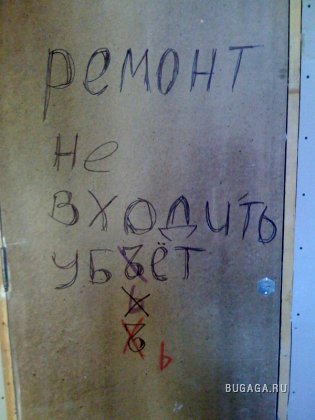 РЕМОНТ
Не
ВХОДИТЬ
УБЪЁТ
ь
BUGAGA.RU